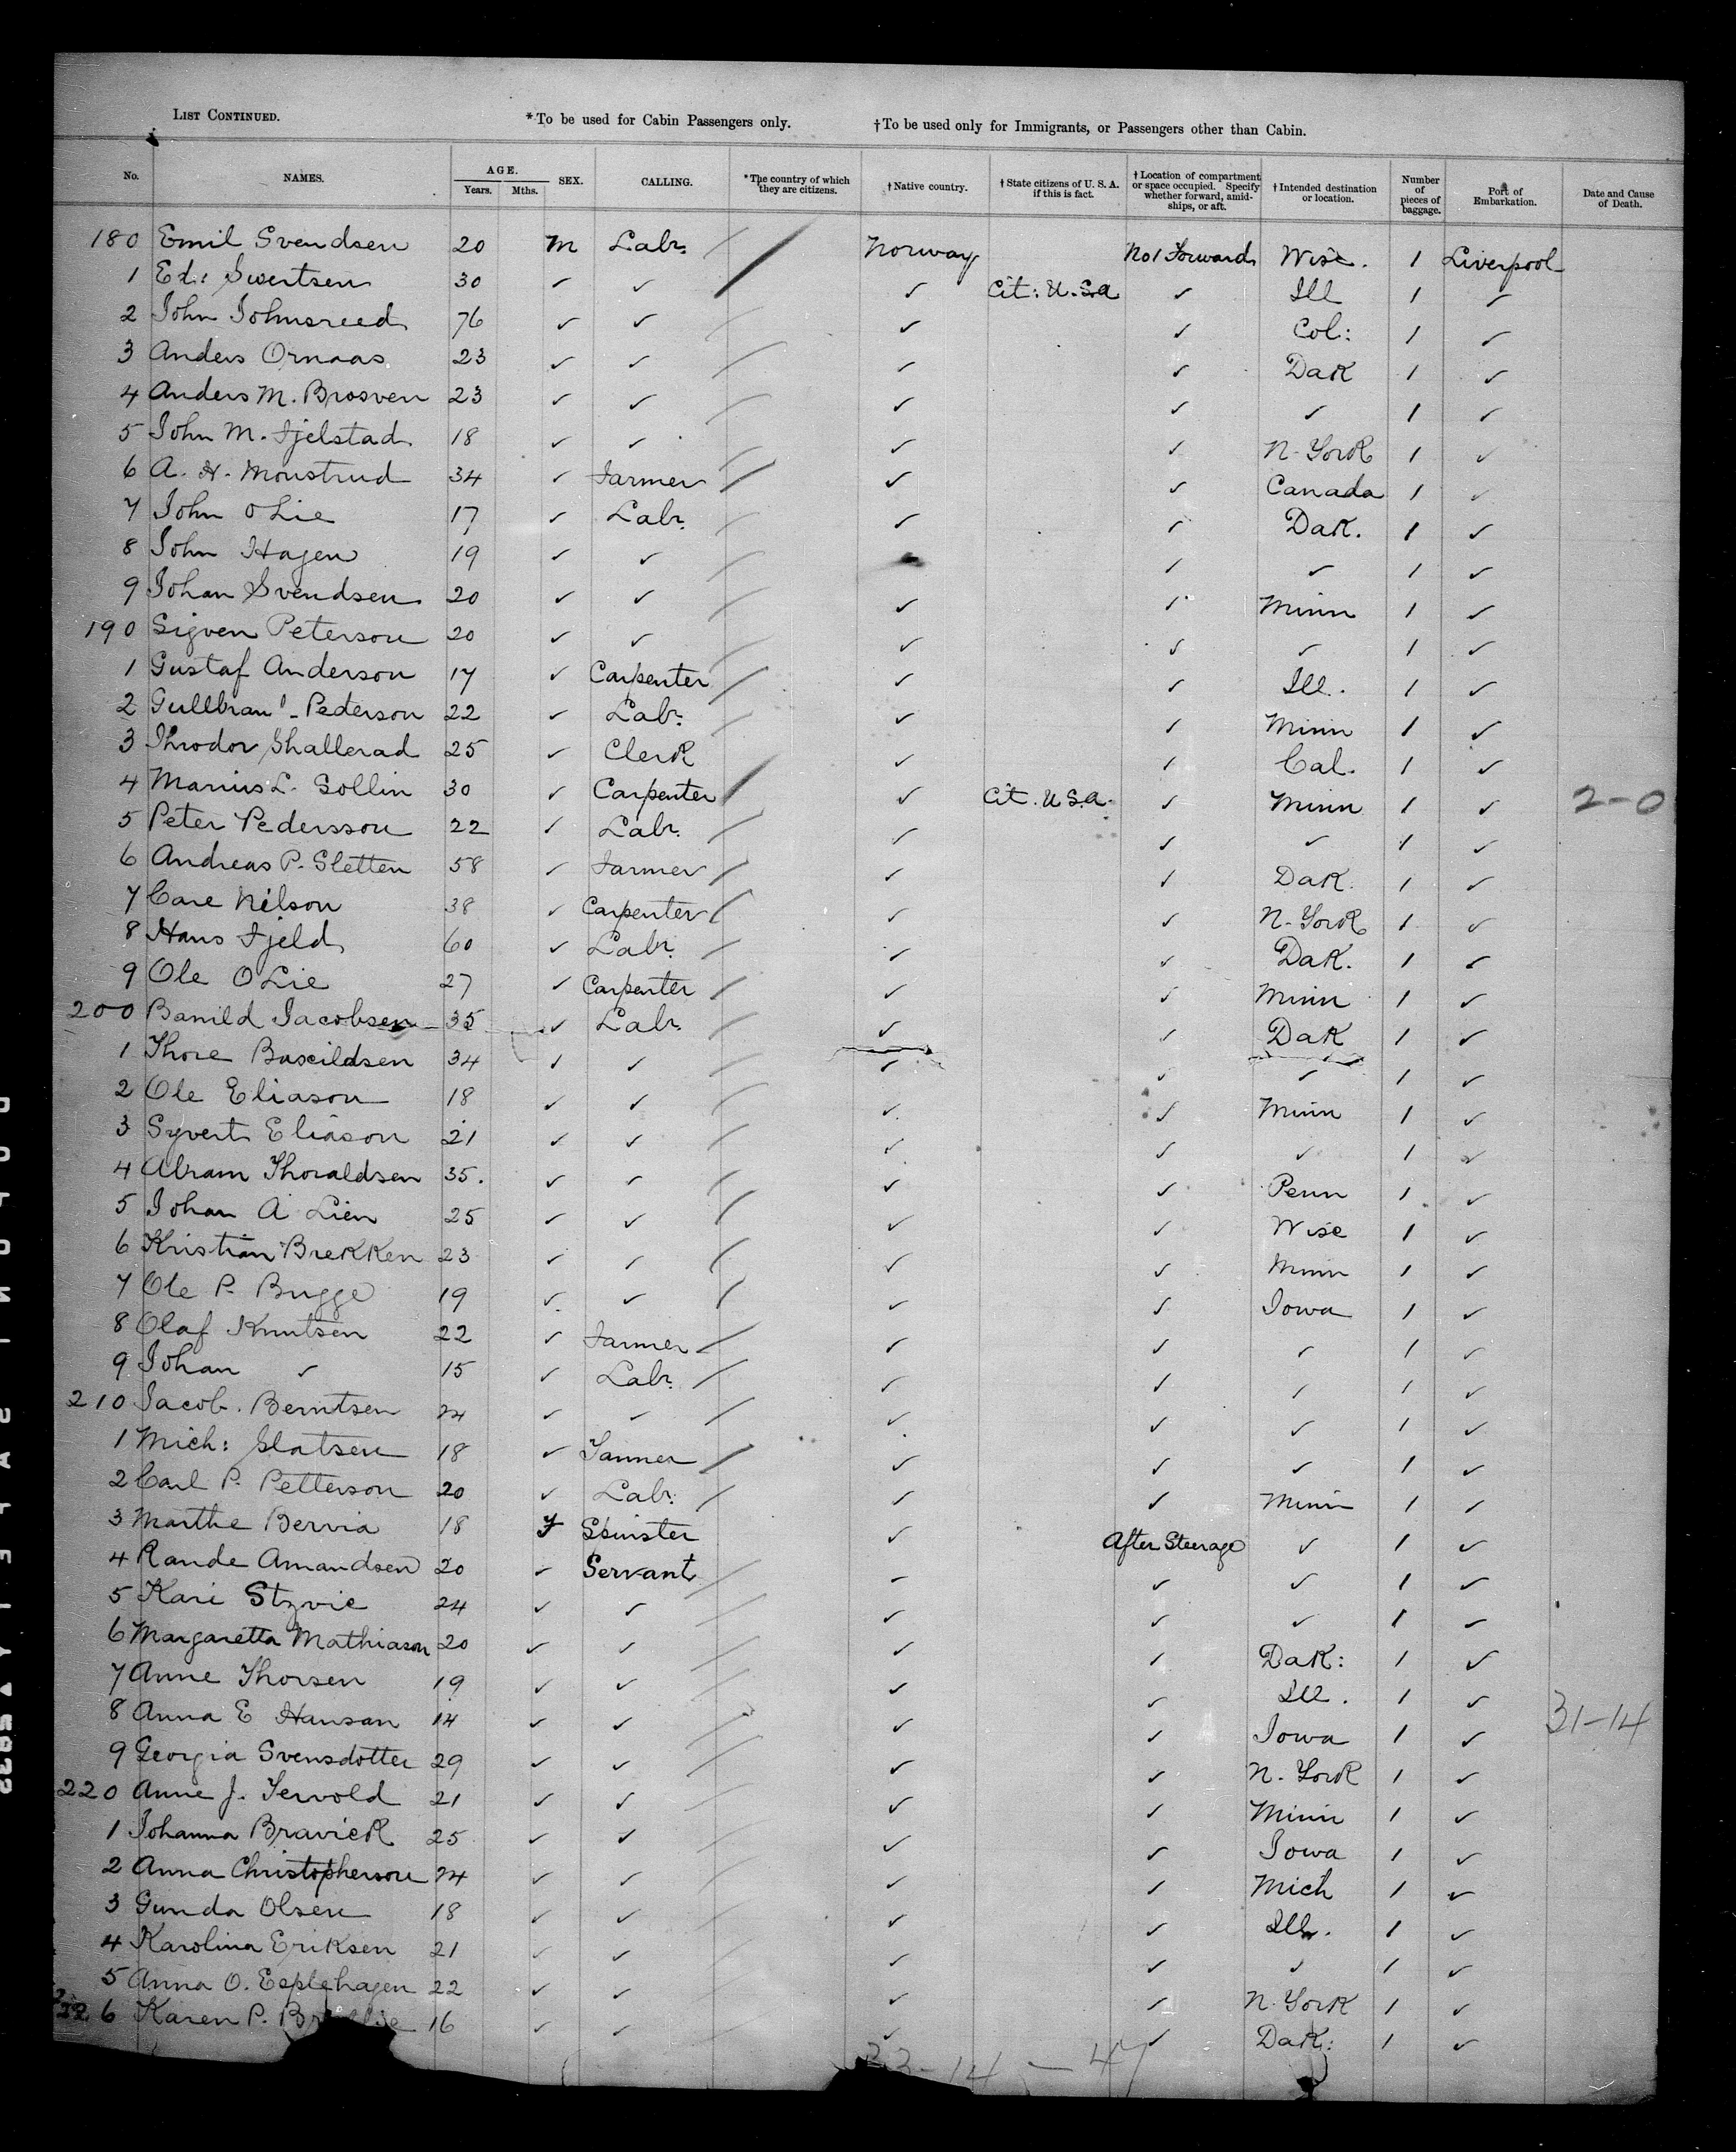 LIST CONTINUED. *To be used for Cabin Passengers only. †To be used only for Immigrants, or Passengers other than Cabin.
No. NAMES. AGE. Years. Mths. SEX. CALLING. *The country of which they are citizens. †Native country. †State citizens of U. S. A. if this is fact. †Location of compartment or space occupied. Specify whether forward, amidships, or aft. †Intended destination or location. Number of pieces of baggage. Port of Embarkation. Date and Cause of Death.
180 Emil Svendsen 20 M Labr. Norway No 1 Forward Wisc. 1 Liverpool
1 Ed: Swertsen 30 ✓ ✓ ✓ Cit: U.S.a ✓ Ill 1 ✓
2 John Johnsreed 76 ✓ ✓ ✓ ✓ Col: 1 ✓
3 Anders Ornaas 23 ✓ ✓ ✓ ✓ Dak 1 ✓
4 Anders M. Brosven 23 ✓ ✓ ✓ ✓ ✓ 1 ✓
5 John M. Fjelstad 18 ✓ ✓ ✓ ✓ N-York 1 ✓
6 A. H. Moustrud 34 ✓ Farmer ✓ ✓ Canada 1 ✓
7 John O Lie 17 ✓ Labr. ✓ ✓ Dak. 1 ✓
8 John Hagen 19 ✓ ✓ ✓ ✓ 1 ✓
9 Johan Svendsen 20 ✓ ✓ ✓ ✓ Minn 1 ✓
190 Sigven Peterson 20 ✓ ✓ ✓ ✓ ✓ 1 ✓
1 Gustaf Anderson 17 ✓ Carpenter ✓ ✓ Ill. 1 ✓
2 Gullbran Pederson 22 ✓ Labr. ✓ ✓ Minn 1 ✓
3 Throdor Shallerad 25 ✓ Clerk ✓ ✓ Cal. 1 ✓
4 Marius L. Gollin 30 ✓ Carpenter ✓ Cit. U.S.a. ✓ Minn 1 ✓ 2-0
5 Peter Pedersson 22 ✓ Labr. ✓ ✓ ✓ 1 ✓
6 Andreas P. Sletten 58 ✓ Farmer ✓ ✓ Dak. 1 ✓
7 Carl Nilson 38 ✓ Carpenter ✓ ✓ N-York 1 ✓
8 Hans Fjeld 60 ✓ Labr. ✓ ✓ Dak. 1 ✓
9 Ole O Lie 27 ✓ Carpenter ✓ ✓ Minn 1 ✓
200 Banild Jacobsen 35 ✓ Labr. ✓ ✓ Dak 1 ✓
1 Thore Baxildsen 34 ✓ ✓ ✓ ✓ ✓ 1 ✓
2 Ole Eliason 18 ✓ ✓ ✓ ✓ Minn 1 ✓
3 Syvert Eliason 21 ✓ ✓ ✓ ✓ ✓ 1 ✓
4 Abram Thoraldsen 35. ✓ ✓ ✓ ✓ Penn 1 ✓
5 Johan A Lien 25 ✓ ✓ ✓ ✓ Wisc 1 ✓
6 Kristian Brekken 23 ✓ ✓ ✓ ✓ Minn 1 ✓
7 Ole P. Bugge 19 ✓ ✓ ✓ ✓ Iowa 1 ✓
8 Olaf Knutsen 22 ✓ Farmer ✓ ✓ ✓ 1 ✓
9 Johan ✓ 15 ✓ Labr. ✓ ✓ ✓ 1 ✓
210 Jacob. Berntsen 24 ✓ ✓ ✓ ✓ ✓ 1 ✓
1 Mich: Slatsen 18 ✓ Tanner ✓ ✓ ✓ 1 ✓
2 Carl P. Petterson 20 ✓ Labr. ✓ ✓ Minn 1 ✓
3 Marthe Bervia 18 F Spinster ✓ After Steerage ✓ 1 ✓
4 Rande Amandsen 20 ✓ Servant ✓ ✓ ✓ 1 ✓
5 Kari Stzvie 24 ✓ ✓ ✓ ✓ ✓ 1 ✓
6 Margaretta Mathiason 20 ✓ ✓ ✓ ✓ Dak: 1 ✓
7 Anne Thorsen 19 ✓ ✓ ✓ ✓ Ill. 1 ✓
8 Anna E Hansan 14 ✓ ✓ ✓ ✓ Iowa 1 ✓ 31-14
9 Georgia Svensdotter 29 ✓ ✓ ✓ ✓ N. York 1 ✓
220 Anne J. Tervold 21 ✓ ✓ ✓ ✓ Minn 1 ✓
1 Johanna Bravick 25 ✓ ✓ ✓ ✓ Iowa 1 ✓
2 Anna Christopherson 24 ✓ ✓ ✓ ✓ Mich 1 ✓
3 Gunda Olsen 18 ✓ ✓ ✓ ✓ Ill. 1 ✓
4 Karolina Eriksen 21 ✓ ✓ ✓ ✓ ✓ 1 ✓
5 Anna O. Esplehagen 22 ✓ ✓ ✓ ✓ N. York 1 ✓
226 Karen P. 16 ✓ ✓ ✓ ✓ Dak: 1 ✓
33-14 - 47